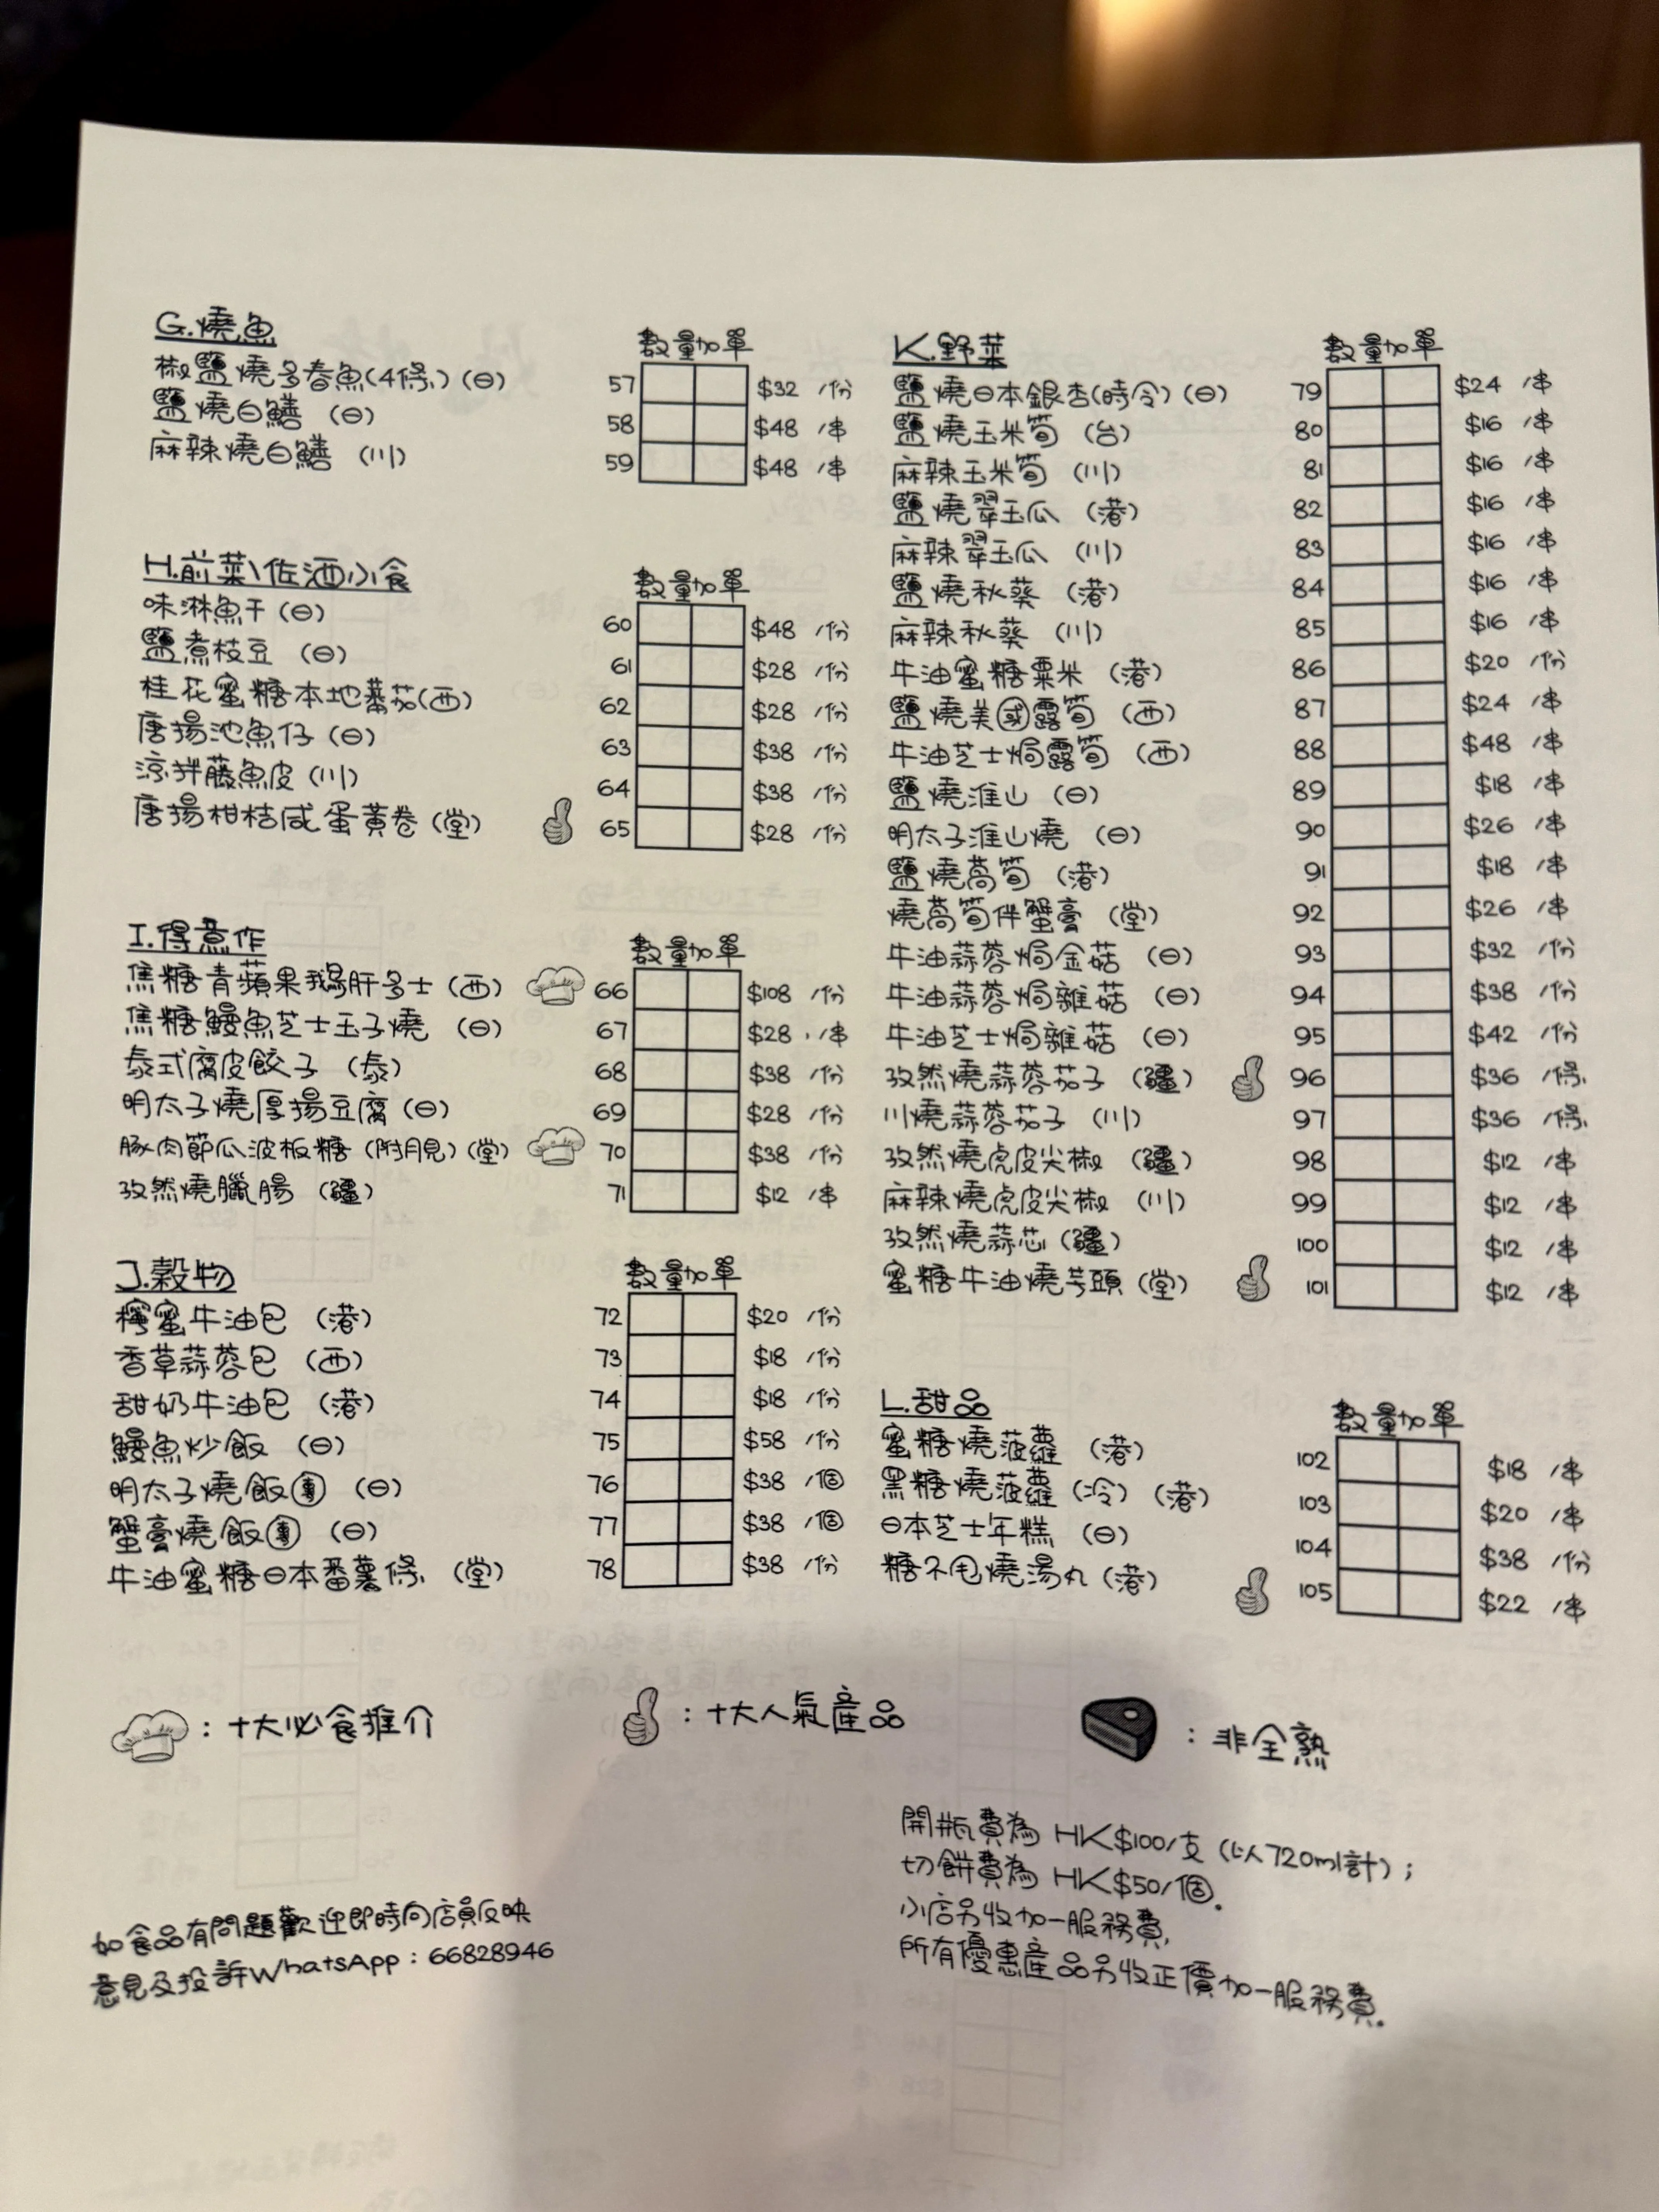 G.燒魚
數量加單
椒鹽燒多春魚(4條)(日) 57 $32 /份
鹽燒白鱔 (日) 58 $48 /串
麻辣燒白鱔 (川) 59 $48 /串
H.前菜\佐酒小食
數量加單
味淋魚干(日) 60 $48 /份
鹽煮枝豆 (日) 61 $28 /份
桂花蜜糖本地蕃茄(西) 62 $28 /份
唐揚池魚仔(日) 63 $38 /份
涼拌藤魚皮(川) 64 $38 /份
唐揚柑桔咸蛋黃卷(堂) 65 $28 /份
I.得意作
數量加單
焦糖青蘋果鵝肝多士(西) 66 $108 /份
焦糖鰻魚芝士玉子燒 (日) 67 $28 /串
泰式腐皮餃子 (泰) 68 $38 /份
明太子燒厚揚豆腐(日) 69 $28 /份
豚肉節瓜波板糖(附月見)(堂) 70 $38 /份
孜然燒臘腸 (疆) 71 $12 /串
J.穀物
數量加單
檸蜜牛油包 (港) 72 $20 /份
香草蒜蓉包 (西) 73 $18 /份
甜奶牛油包 (港) 74 $18 /份
鰻魚炒飯 (日) 75 $58 /份
明太子燒飯團 (日) 76 $38 /個
蟹膏燒飯團 (日) 77 $38 /個
牛油蜜糖日本番薯條 (堂) 78 $38 /份
K.野菜
數量加單
鹽燒日本銀杏(時令)(日) 79 $24 /串
鹽燒玉米筍 (台) 80 $16 /串
麻辣玉米筍 (川) 81 $16 /串
鹽燒翠玉瓜 (港) 82 $16 /串
麻辣翠玉瓜 (川) 83 $16 /串
鹽燒秋葵 (港) 84 $16 /串
麻辣秋葵 (川) 85 $16 /串
牛油蜜糖粟米 (港) 86 $20 /份
鹽燒美國露筍 (西) 87 $24 /串
牛油芝士焗露筍 (西) 88 $48 /串
鹽燒淮山 (日) 89 $18 /串
明太子淮山燒 (日) 90 $26 /串
鹽燒萵筍 (港) 91 $18 /串
燒萵筍伴蟹膏 (堂) 92 $26 /串
牛油蒜蓉焗金菇 (日) 93 $32 /份
牛油蒜蓉焗雜菇 (日) 94 $38 /份
牛油芝士焗雜菇 (日) 95 $42 /份
孜然燒蒜蓉茄子 (疆) 96 $36 /條
川燒蒜蓉茄子 (川) 97 $36 /條
孜然燒虎皮尖椒 (疆) 98 $12 /串
麻辣燒虎皮尖椒 (川) 99 $12 /串
孜然燒蒜芯(疆) 100 $12 /串
蜜糖牛油燒芋頭(堂) 101 $12 /串
L.甜品
數量加單
蜜糖燒菠蘿 (港) 102 $18 /串
黑糖燒菠蘿(冷)(港) 103 $20 /串
日本芝士年糕 (日) 104 $38 /份
糖不甩燒湯丸(港) 105 $22 /串
：十大必食推介
：十大人氣產品
：非全熟
如食品有問題歡迎即時向店員反映
意見及投訴WhatsApp：66828946
開瓶費為 HK$100/支 (以720ml計)；
切餅費為 HK$50/個。
小店另收加一服務費，
所有優惠產品另收正價加一服務費。